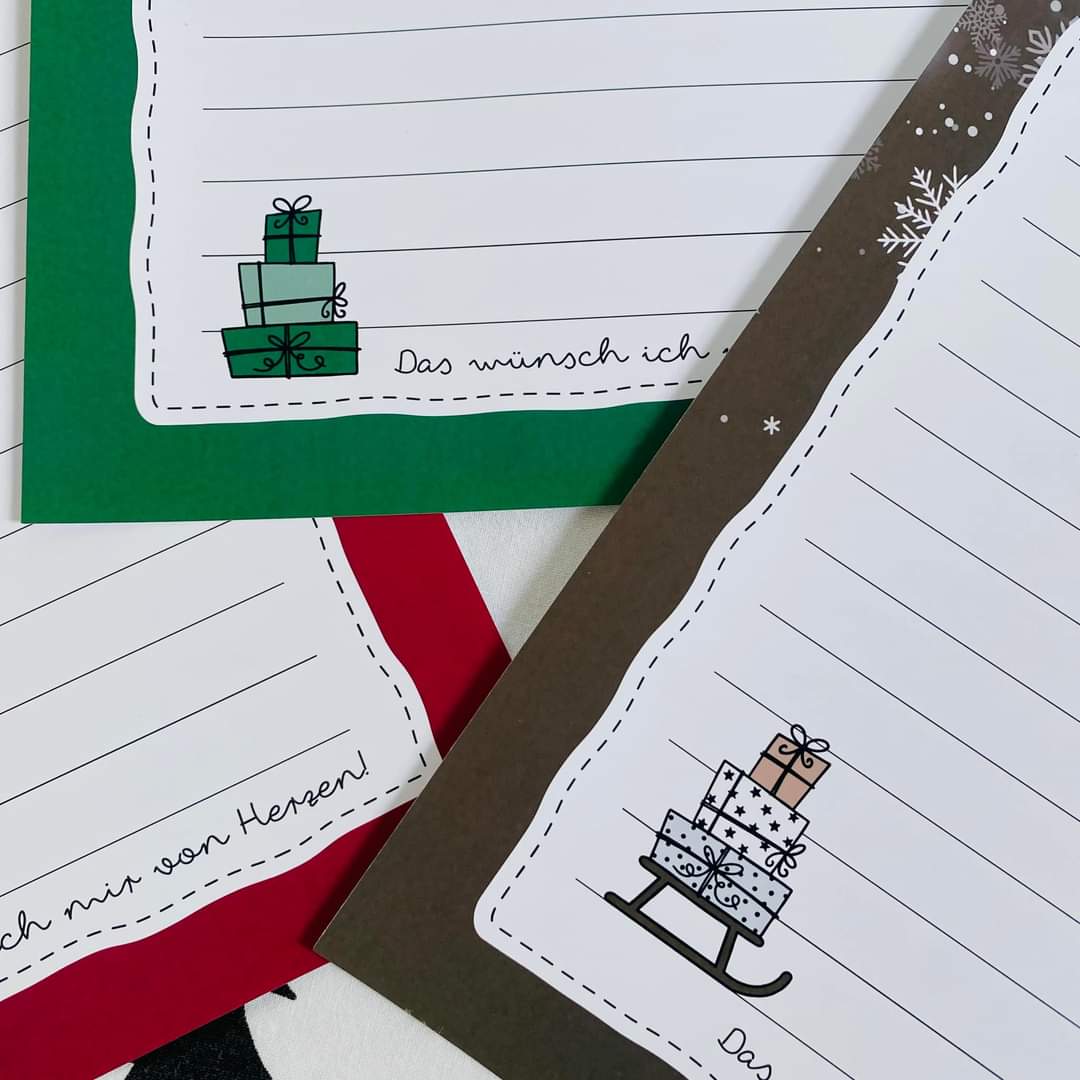 Das wünsch ich
ch mir von Herzen!
Das